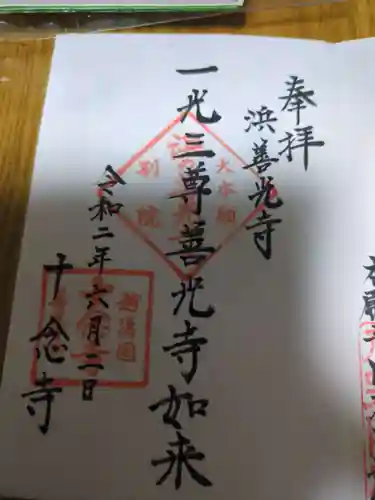 奉拝
浜善光寺
一光三尊善光寺如来
令和二年六月二日
十念寺
大本願
別院
越後国